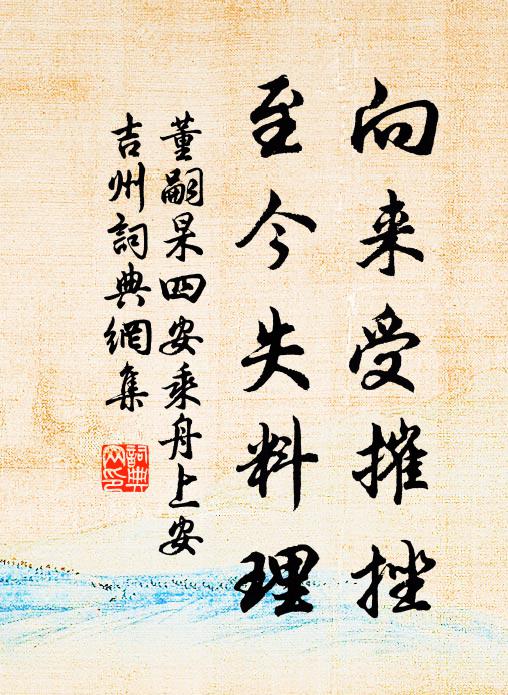 向来受摧挫
至今失料理
董嗣杲四安乘舟上安
吉州詞典網集
詞典
网印